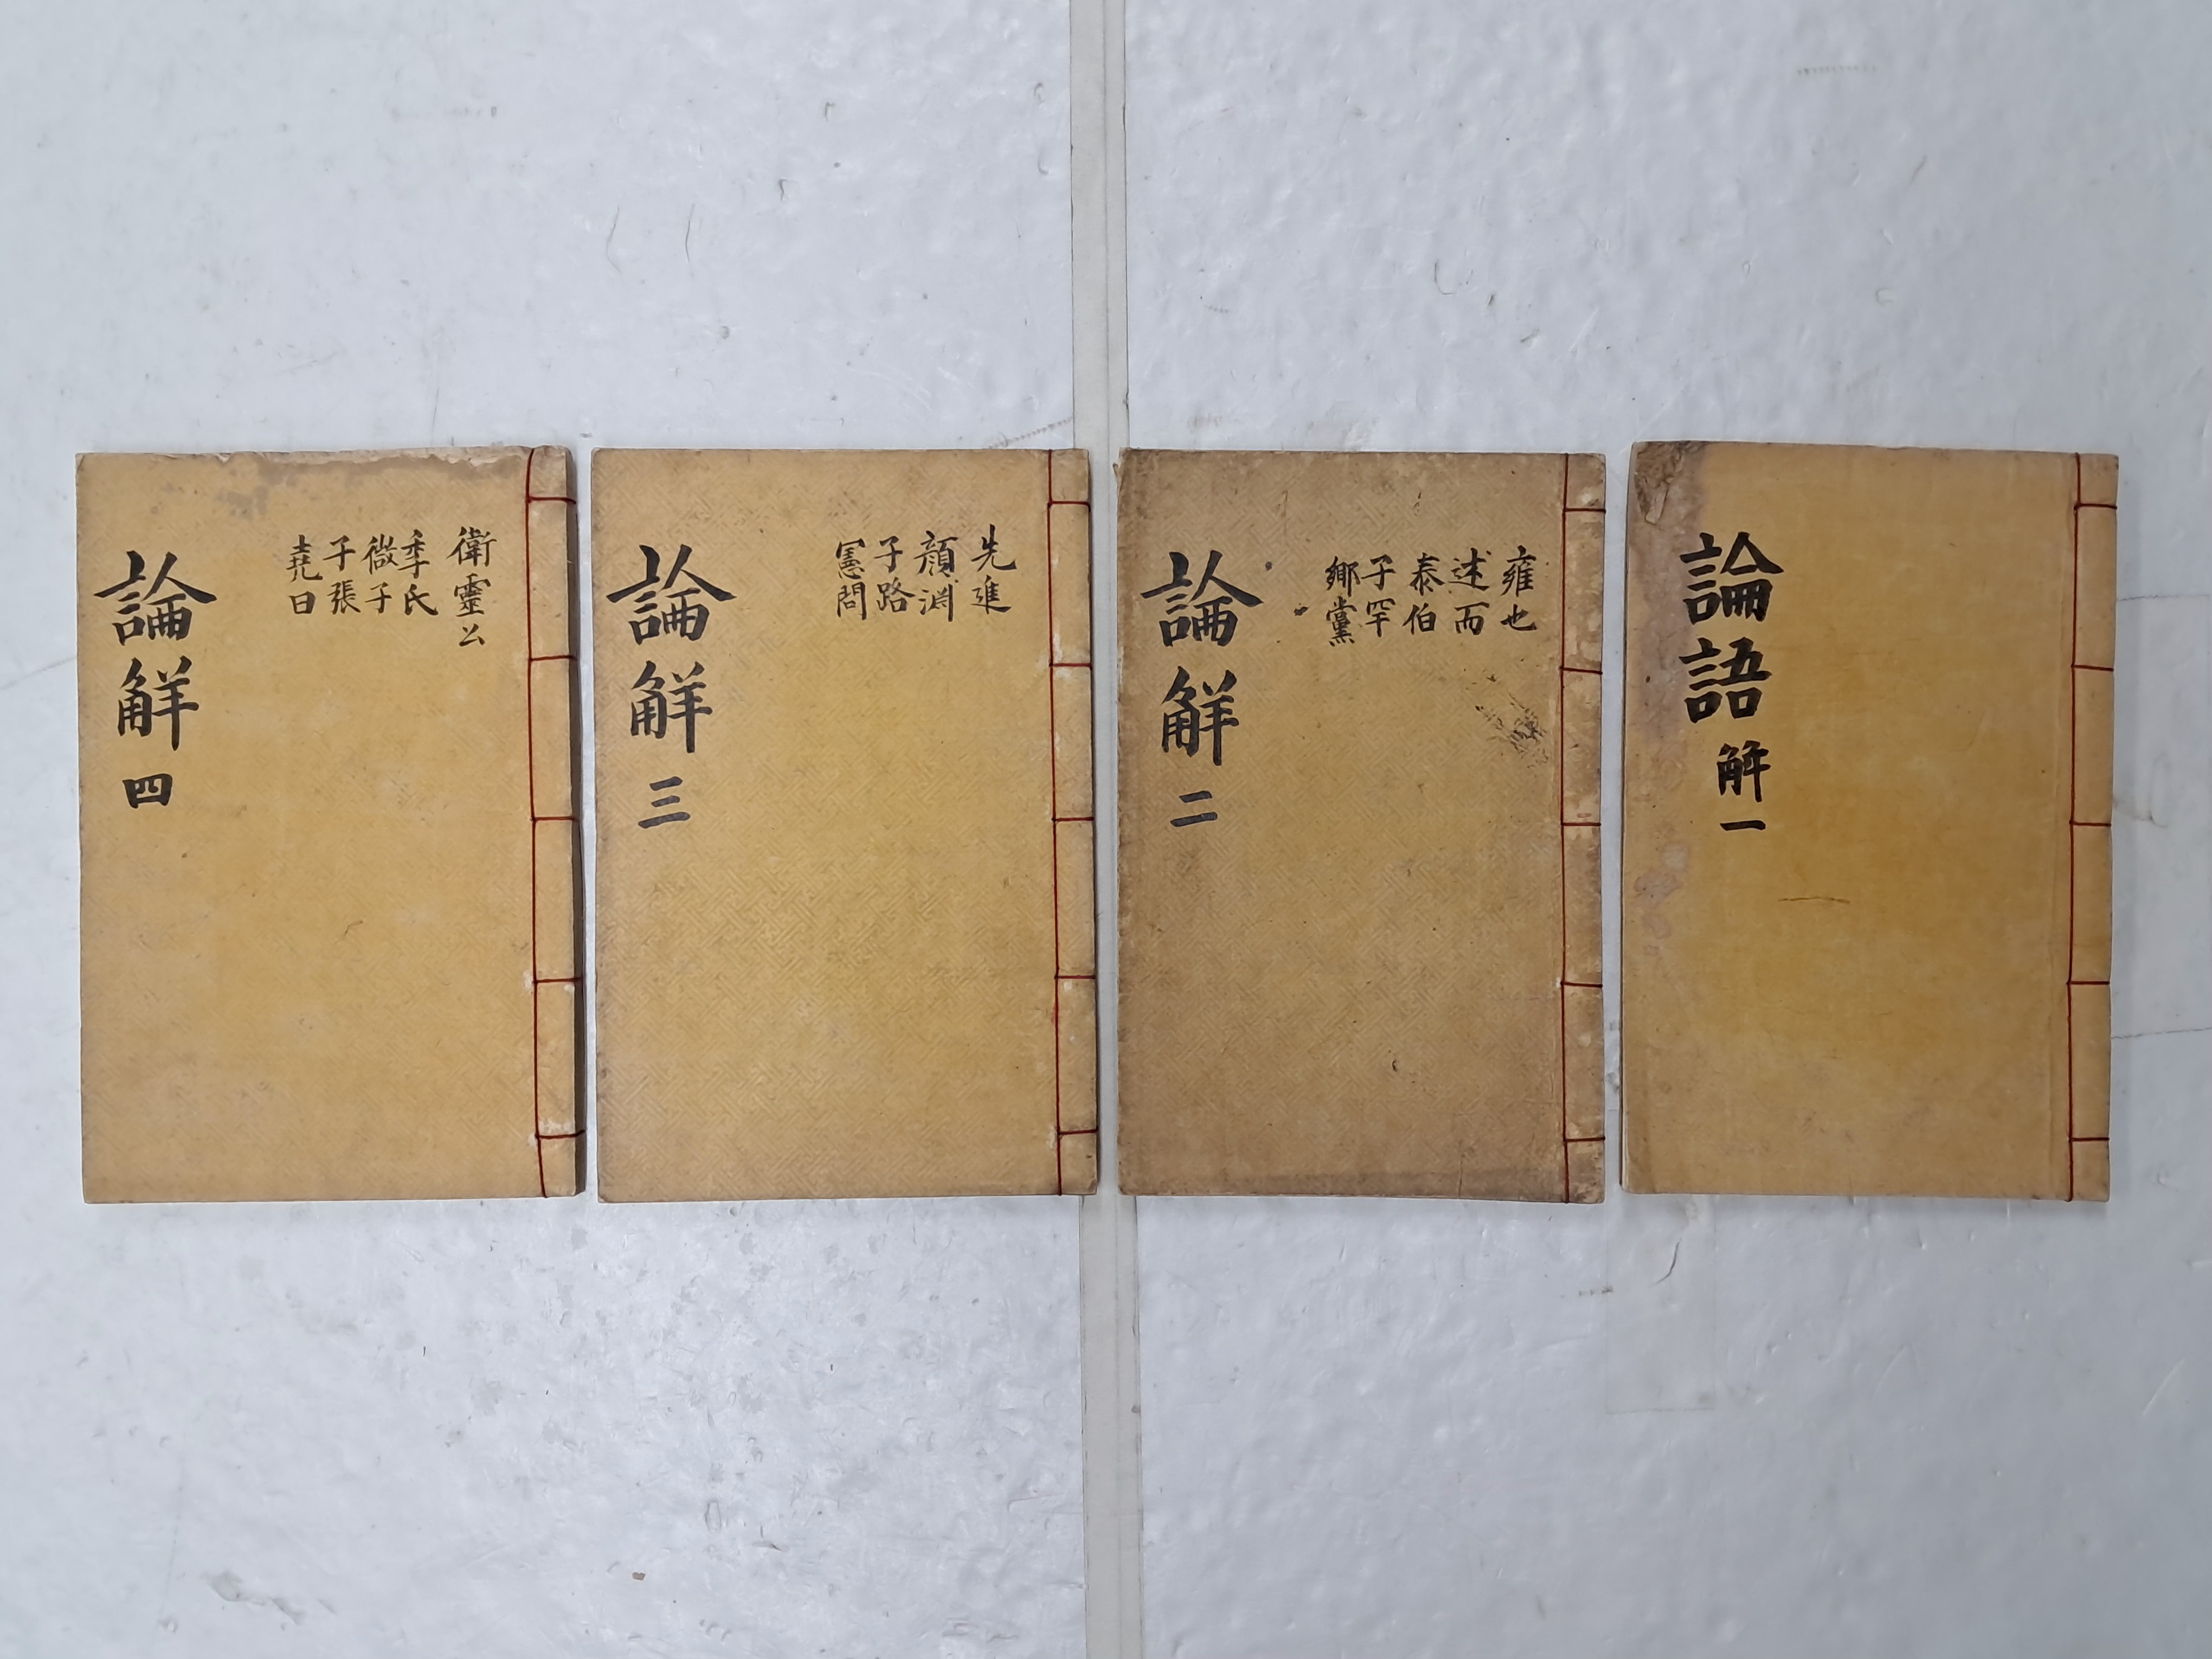 論語解一
雍也
述而
泰伯
子罕
鄉黨
論解二
先進
顏淵
子路
憲問
論解三
衛靈公
季氏
微子
子張
堯曰
論解四